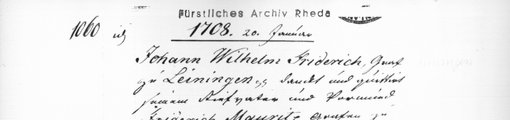 Fürstliches Archiv Rheda
1060
1708. 20. Januar
Johann Wilhelm Friderich, Graf
zu Leiningen dankt und quittirt
seinem Stiefvater und Vormund
Friderich Mauritz Grafen zu